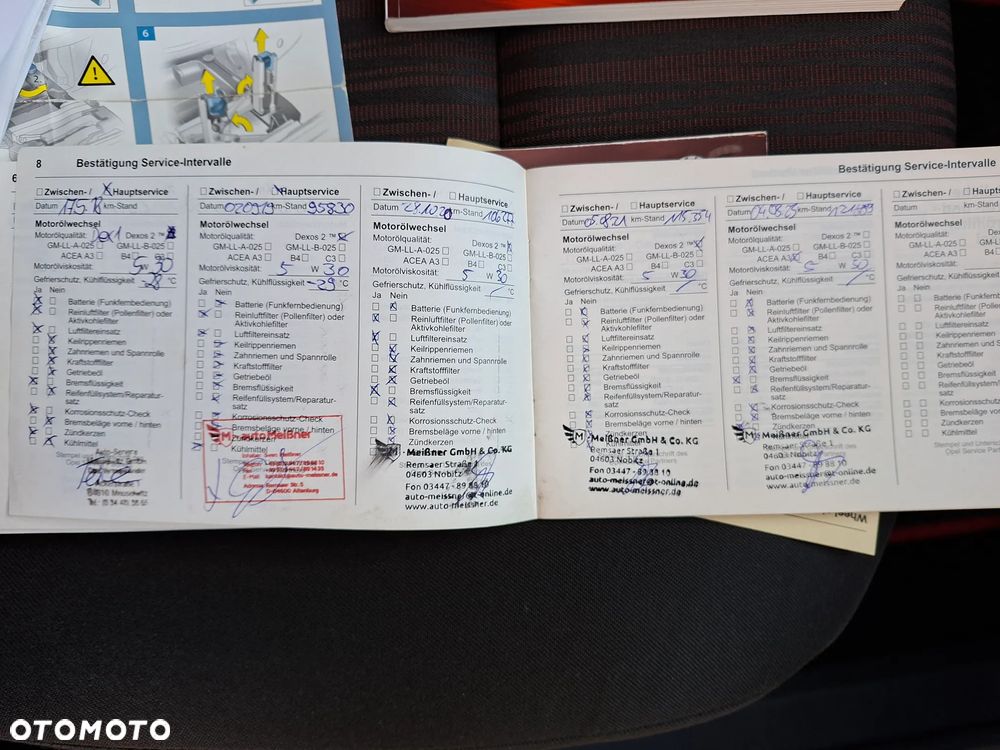 6
8 Bestätigung Service-Intervalle
Zwischen- / Hauptservice
Datum 17.5.18 km-Stand
Motorölwechsel
Motorölqualität: Dexos 2 ™
GM-LL-A-025 GM-LL-B-025
ACEA A3 B4 C3
Motorölviskosität: 5 W 30
Gefrierschutz, Kühlflüssigkeit °C
Ja Nein
Batterie (Funkfernbedienung)
Reinluftfilter (Pollenfilter) oder
Aktivkohlefilter
Luftfiltereinsatz
Keilrippenriemen
Zahnriemen und Spannrolle
Kraftstofffilter
Getriebeöl
Bremsflüssigkeit
Reifenfüllsystem/Reparatur-
satz
Korrosionsschutz-Check
Bremsbeläge vorne / hinten
Zündkerzen
Kühlmittel
Zwischen- / Hauptservice
Datum 020919 km-Stand 95830
Motorölwechsel
Motorölqualität: Dexos 2 ™
GM-LL-A-025 GM-LL-B-025
ACEA A3 B4 C3
Motorölviskosität: 5 W 30
Gefrierschutz, Kühlflüssigkeit -29 °C
Ja Nein
Batterie (Funkfernbedienung)
Reinluftfilter (Pollenfilter) oder
Aktivkohlefilter
Luftfiltereinsatz
Keilrippenriemen
Zahnriemen und Spannrolle
Kraftstofffilter
Getriebeöl
Bremsflüssigkeit
Reifenfüllsystem/Reparatur-
satz
Korrosionsschutz-Check
Bremsbeläge vorne / hinten
Zündkerzen
Kühlmittel
auto Meißner
D-04600 Altenburg
Zwischen- / Hauptservice
Datum km-Stand
Motorölwechsel
Motorölqualität: Dexos 2 ™
GM-LL-A-025 GM-LL-B-025
ACEA A3 B4 C3
Motorölviskosität: 5 W 30
Gefrierschutz, Kühlflüssigkeit °C
Ja Nein
Batterie (Funkfernbedienung)
Reinluftfilter (Pollenfilter) oder
Aktivkohlefilter
Luftfiltereinsatz
Keilrippenriemen
Zahnriemen und Spannrolle
Kraftstofffilter
Getriebeöl
Bremsflüssigkeit
Reifenfüllsystem/Reparatur-
satz
Korrosionsschutz-Check
Bremsbeläge vorne / hinten
Zündkerzen
Meißner GmbH & Co. KG
Remsaer Straße 1
04603 Nobitz
Fon 03447 - 89 88 10
auto-meissner@t-online.de
www.auto-meissner.de
Bestätigung Service-Intervalle
Zwischen- / Hauptservice
Datum 05.8.21 km-Stand
Motorölwechsel
Motorölqualität: Dexos 2 ™
GM-LL-A-025 GM-LL-B-025
ACEA A3 B4 C3
Motorölviskosität: 5 W 30
Gefrierschutz, Kühlflüssigkeit °C
Ja Nein
Batterie (Funkfernbedienung)
Reinluftfilter (Pollenfilter) oder
Aktivkohlefilter
Luftfiltereinsatz
Keilrippenriemen
Zahnriemen und Spannrolle
Kraftstofffilter
Getriebeöl
Bremsflüssigkeit
Reifenfüllsystem/Reparatur-
satz
Korrosionsschutz-Check
Bremsbeläge vorne / hinten
Zündkerzen
Meißner GmbH & Co. KG
Remsaer Straße 1
04603 Nobitz
Fon 03447 - 89 88 10
auto-meissner@t-online.de
www.auto-meissner.de
Zwischen- / Hauptservice
Datum km-Stand
Motorölwechsel
Motorölqualität: Dexos 2 ™
GM-LL-A-025 GM-LL-B-025
ACEA A3 B4 C3
Motorölviskosität: 5 W 30
Gefrierschutz, Kühlflüssigkeit °C
Ja Nein
Batterie (Funkfernbedienung)
Reinluftfilter (Pollenfilter) oder
Aktivkohlefilter
Luftfiltereinsatz
Keilrippenriemen
Zahnriemen und Spannrolle
Kraftstofffilter
Getriebeöl
Bremsflüssigkeit
Reifenfüllsystem/Reparatur-
satz
Korrosionsschutz-Check
Bremsbeläge vorne / hinten
Zündkerzen
Meißner GmbH & Co. KG
Remsaer Straße 1
04603 Nobitz
Fon 03447 - 89 88 10
auto-meissner@t-online.de
www.auto-meissner.de
Zwischen- /
Datum
Motorölwechsel
Motorölqualität:
GM-LL-A-025
ACEA A3
Motorölviskosität:
Gefrierschutz, Kühl
Ja Nein
Batterie
Reinluftfilter
Aktivkohlefilter
Luftfiltereinsatz
Keilrippenriemen
Zahnriemen
Kraftstofffilter
Getriebeöl
Bremsflüssigkeit
Reifenfüll
satz
Korrosions
Bremsbeläge
Zündkerzen
Kühlmittel
Stempel und Unters
Opel Service Part
Wheel
OTOMOTO